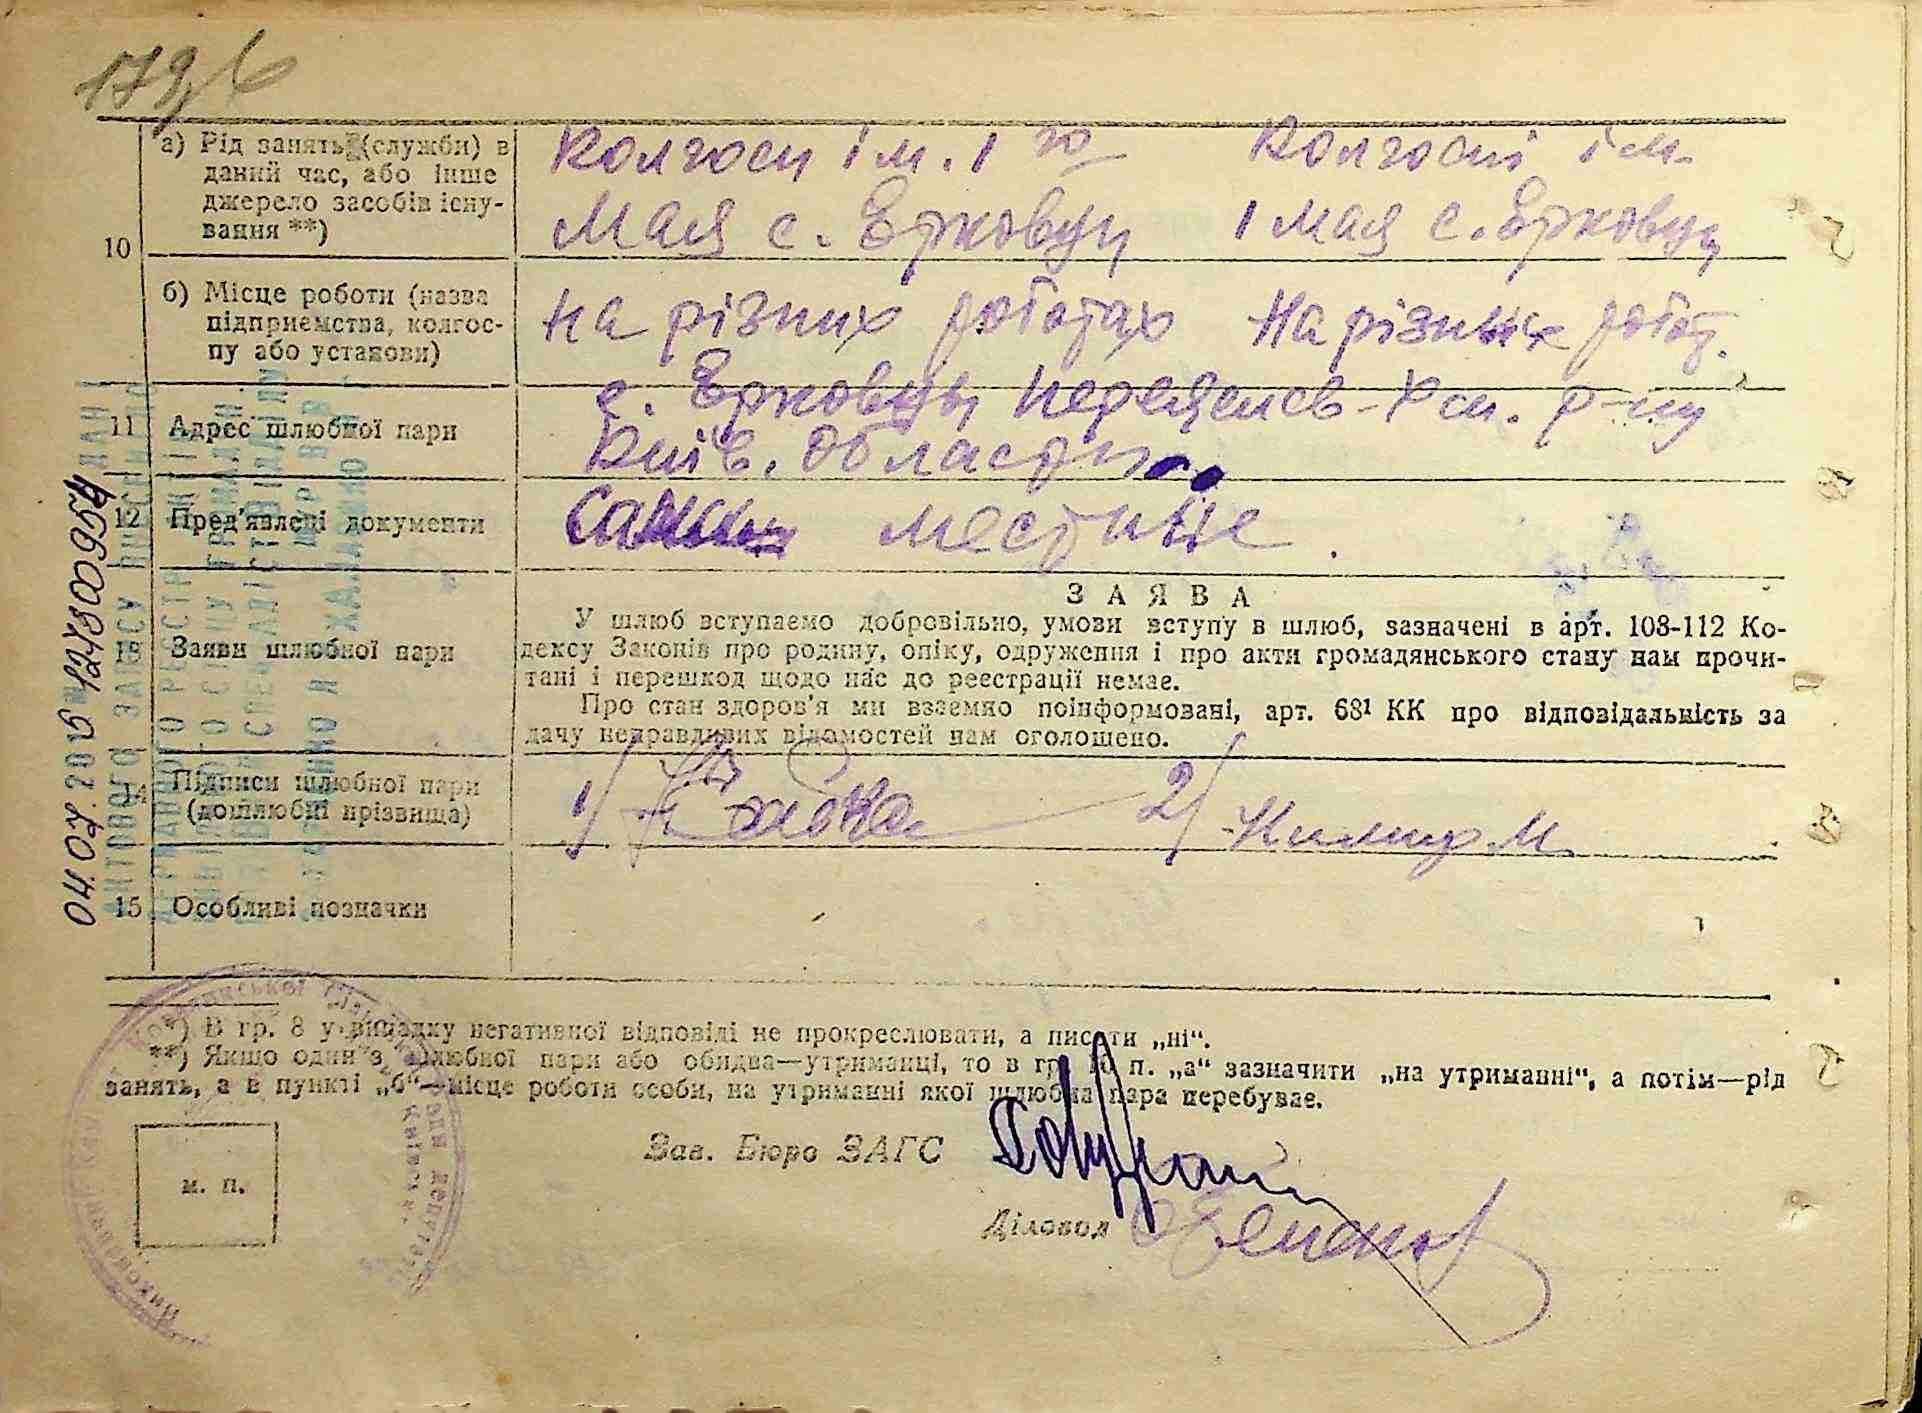 а) Рід занять (служби) в
даний час, або інше
джерело засобів існу-
вання **)
10
Колгосп ім. 1 го
Мая с. Ерковцы
Колгосп ім.
1 Мая с. Ерковцы
б) Місце роботи (назва
підприємства, колгос-
пу або установи)
на різних роботах
На різних робот.
11 Адрес шлюбної пари
с. Ерковцы Переяслов-Хм. р-ну
Київ. області
12 Пред'явлені документи
местные.
13 Заяви шлюбної пари
ЗАЯВА
У шлюб вступаємо добровільно, умови вступу в шлюб, зазначені в арт. 108-112 Ко-
дексу Законів про родину, опіку, одруження і про акти громадянського стану нам прочи-
тані і перешкод щодо нас до реєстрації немає.
Про стан здоров'я ми взаємно поінформовані, арт. 68¹ КК про відповідальність за
дачу неправдивих відомостей нам оголошено.
14 Підписи шлюбної пари
(дошлюбні прізвища)
1/
2/
15 Особливі позначки
*) В гр. 8 у випадку негативної відповіді не прокреслювати, а писати „ні".
**) Якщо один з шлюбної пари або обидва—утриманці, то в гр. 10 п. „а" зазначити „на утриманні", а потім—рід
занять, а в пункті „б"—місце роботи особи, на утриманні якої шлюбна пара перебуває.
Зав. Бюро ЗАГС
м. п.
Діловод
04.07.20